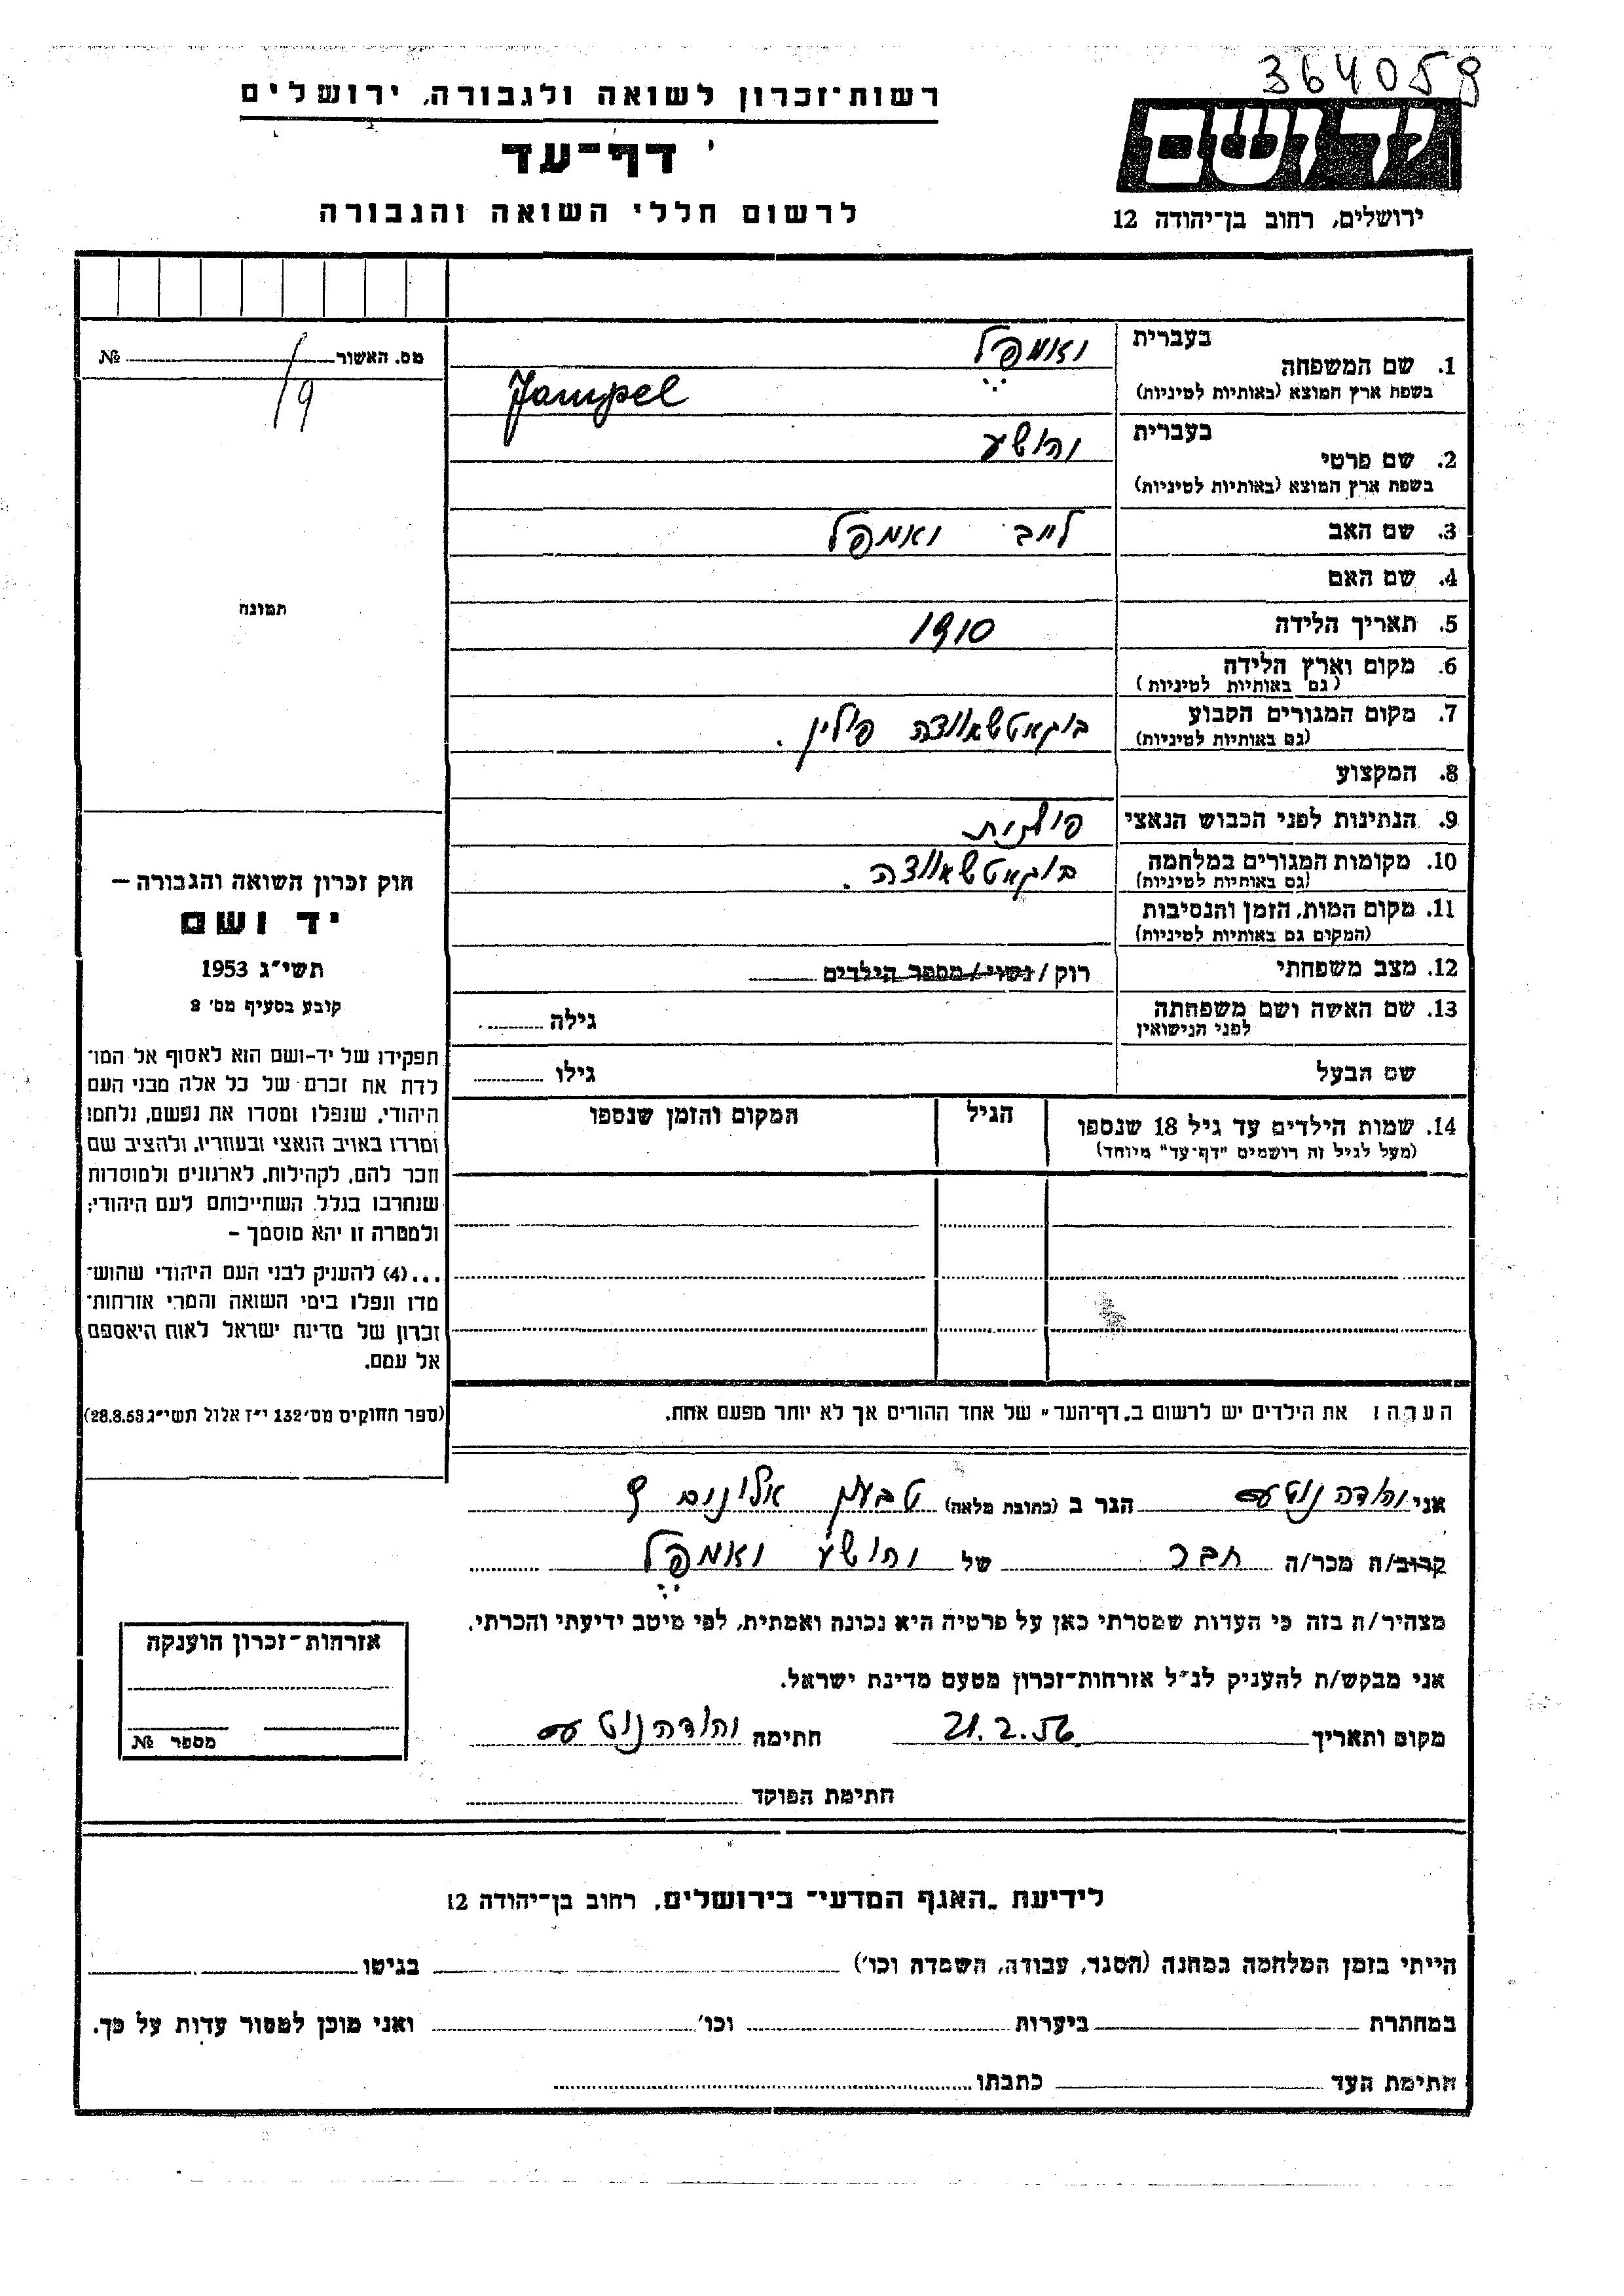 364059
רשות-זכרון לשואה ולגבורה, ירושלים
דף-עד
לרשום חללי השואה והגבורה
יד ושם
ירושלים, רחוב בן-יהודה 12
מס. האשור № 9/
1. שם המשפחה
בעברית יאמפל
בשפת ארץ המוצא (באותיות לטיניות) Jampel
2. שם פרטי
בעברית יהושע
בשפת ארץ המוצא (באותיות לטיניות)
3. שם האב לייב יאמפל
4. שם האם
5. תאריך הלידה 1910
6. מקום וארץ הלידה
(גם באותיות לטיניות)
7. מקום המגורים הקבוע בוקאטשאווצה פולין.
(גם באותיות לטיניות)
8. המקצוע
9. הנתינות לפני הכבוש הנאצי פולנית
10. מקומות המגורים במלחמה בוקאטשאווצה.
(גם באותיות לטיניות)
11. מקום המות, הזמן והנסיבות
(המקום גם באותיות לטיניות)
12. מצב משפחתי רוק / נשוי / מספר הילדים
13. שם האשה ושם משפחתה גילה
לפני הנישואין
שם הבעל גילו
14. שמות הילדים עד גיל 18 שנספו הגיל המקום והזמן שנספו
(מעל לגיל זה רושמים "דף-עד" מיוחד)
תמונה
חוק זכרון השואה והגבורה —
יד ושם
תשי"ג 1953
קובע בסעיף מס' 2
תפקידו של יד-ושם הוא לאסוף אל המו-
לדת את זכרם של כל אלה מבני העם
היהודי, שנפלו ומסרו את נפשם, נלחמו
ומרדו באויב הנאצי ובעוזריו, ולהציב שם
וזכר להם, לקהילות, לארגונים ולמוסדות
שנחרבו בגלל השתייכותם לעם היהודי;
ולמטרה זו יהא מוסמך –
...(4) להעניק לבני העם היהודי שהוש-
מדו ונפלו בימי השואה והמרי אזרחות-
זכרון של מדינת ישראל לאות היאספם
אל עמם.
(ספר החוקים מס' 132 י"ז אלול תשי"ג 28.8.53)
הערה: את הילדים יש לרשום ב"דף-העד" של אחד ההורים אך לא יותר מפעם אחת.
אני יהודה הגר ב (כתובת מלאה) טבעון אלונים 9
קרוב/ה מכר/ה חבר של יהושע יאמפל
מצהיר/ה בזה כי העדות שמסרתי כאן על פרטיה היא נכונה ואמתית, לפי מיטב ידיעתי והכרתי.
אני מבקש/ת להעניק לנ"ל אזרחות-זכרון מטעם מדינת ישראל.
מקום ותאריך 21.2.56 חתימה יהודה
חתימת הפוקד
אזרחות-זכרון הוענקה
מספר №
לידיעת "האגף המדעי" בירושלים, רחוב בן-יהודה 12
הייתי בזמן המלחמה במחנה (הסגר, עבודה, השמדה וכו') בגיטו
במחתרת ביערות וכו' ואני מוכן למסור עדות על כך.
חתימת העד כתבתו